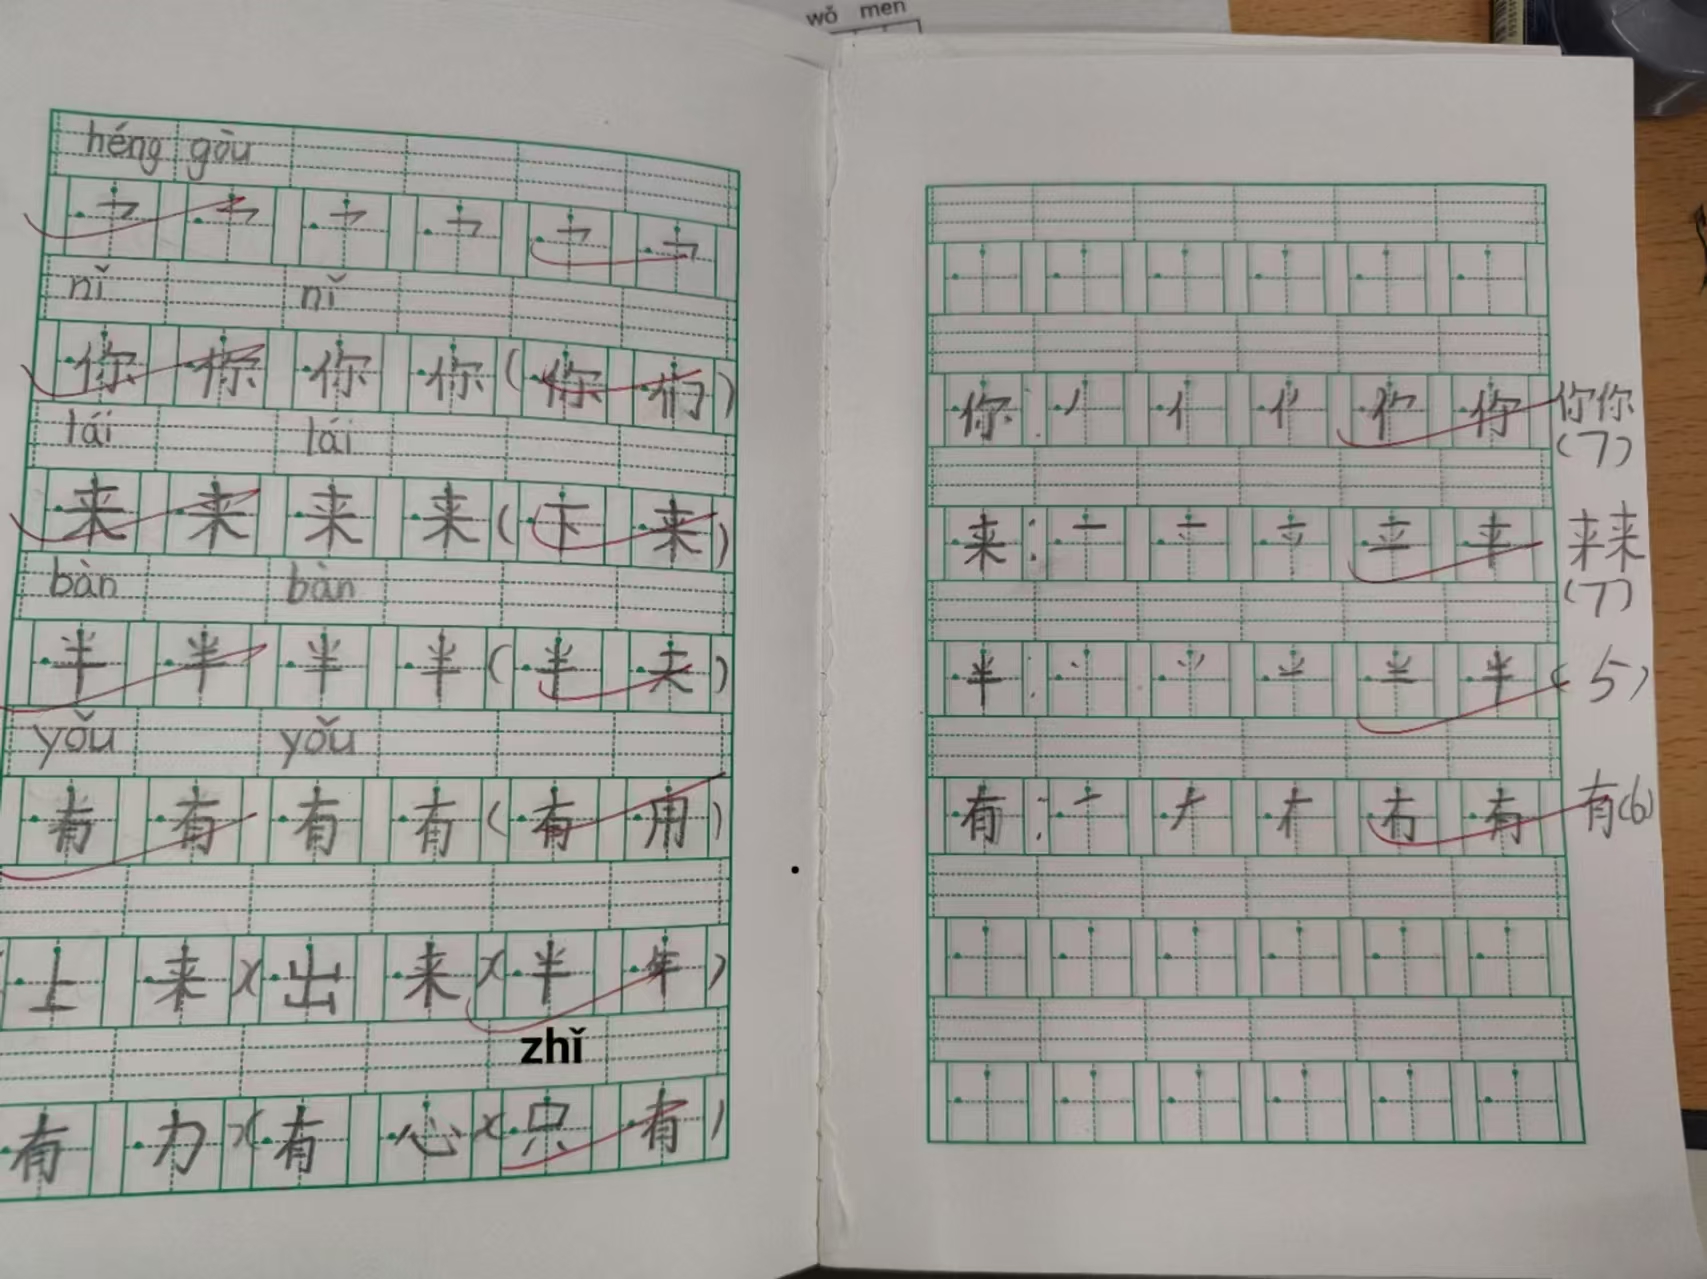 wǒ men
héng gòu
乛 乛 乛 乛 乛 乛
nǐ nǐ
你 你 你 你 ( 你 们 )
lái lái
来 来 来 来 ( 下 来 )
bàn bàn
半 半 半 半 ( 半 天 )
yǒu yǒu
有 有 有 有 ( 有 用 )
上 来 )( 出 来 )( 半 年 )
zhǐ
有 力 )( 有 心 )( 只 有 )
你 : 丿 亻 你 你 你
(7)
来 : 一 来来
(7)
半 : 丶 丷 半 (5)
有 : 一 ナ 有 有(6)